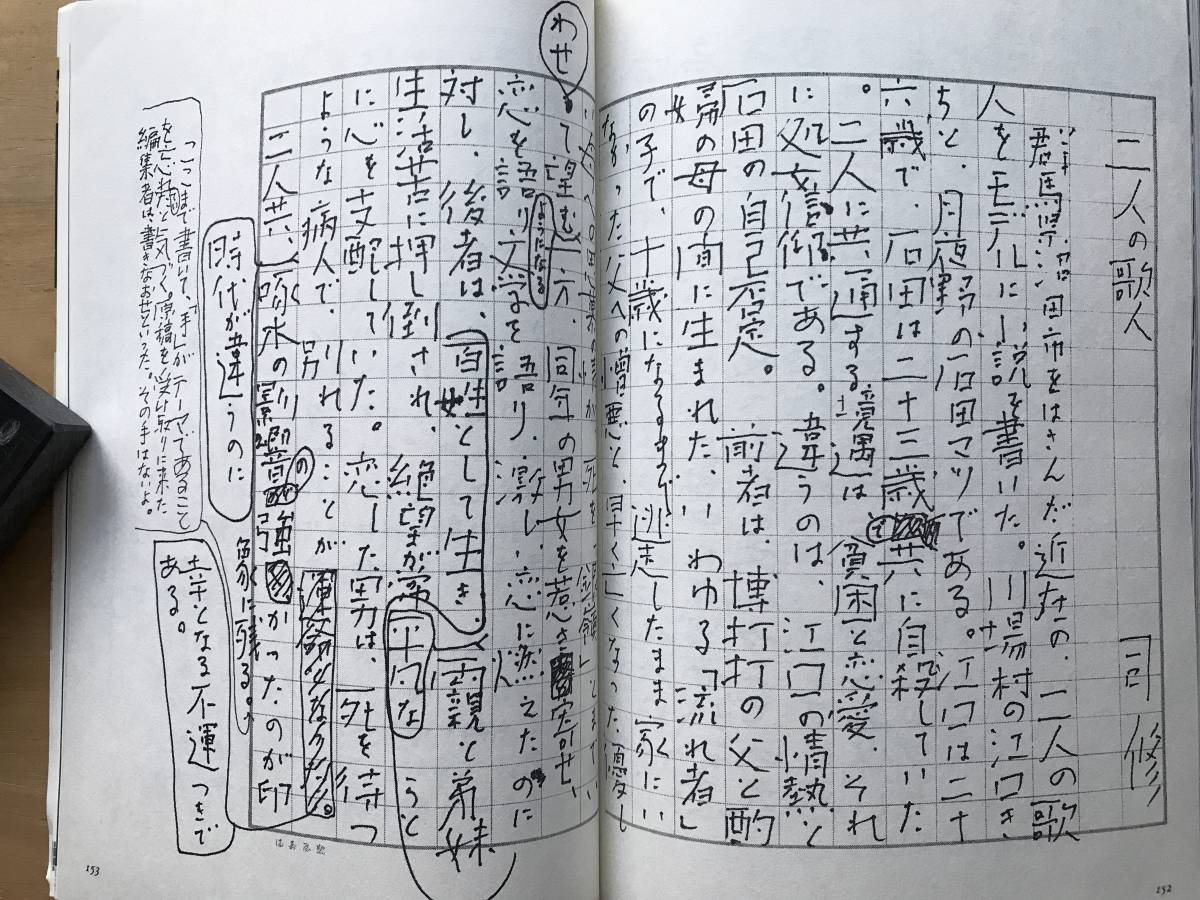 二人の歌人
司 修
群馬県沼田市をはさんだ近在の、二人の歌
人をモデルに小説を書いた。川場村の江口き
ちと、月夜野の石田マツである。江口は二十
六歳で、石田は二十三歳で共に自殺していた
。二人に共通する境遇は貧困と恋愛、それ
に処女信仰である。違うのは、江口の情熱と
石田の自己否定。前者は、博打打の父と酌
婦の母の間に生まれた、いわゆる「流れ者」
の子で、
女
十歳になるまで逃走したまま家にい
なかった父への憎悪と、早く亡くなった優し
い母への思慕の
わせ
て望むようになる一方、同年の男女を惹き寄せ、
恋を語り文学を語り、涙し、恋に燃えたのに
対し、後者は、百姓女として生き、親と弟妹
生活苦に押し倒され、絶望が深
平凡な
うと
に心を支配していた。恋した男は、死を待つ
ような病人で、別れることが運命なのだった。
二人共、啄木の影響の強かったのが印
象に残る。
時代が違うのに
共となる不運つきで
ある。
「ここまで書いて、「手」がテーマであること
を忘れたと気づく。原稿を受け取りに来た
編集者は書きなおせといった。その手はないよ。
はあおぶ
153
152